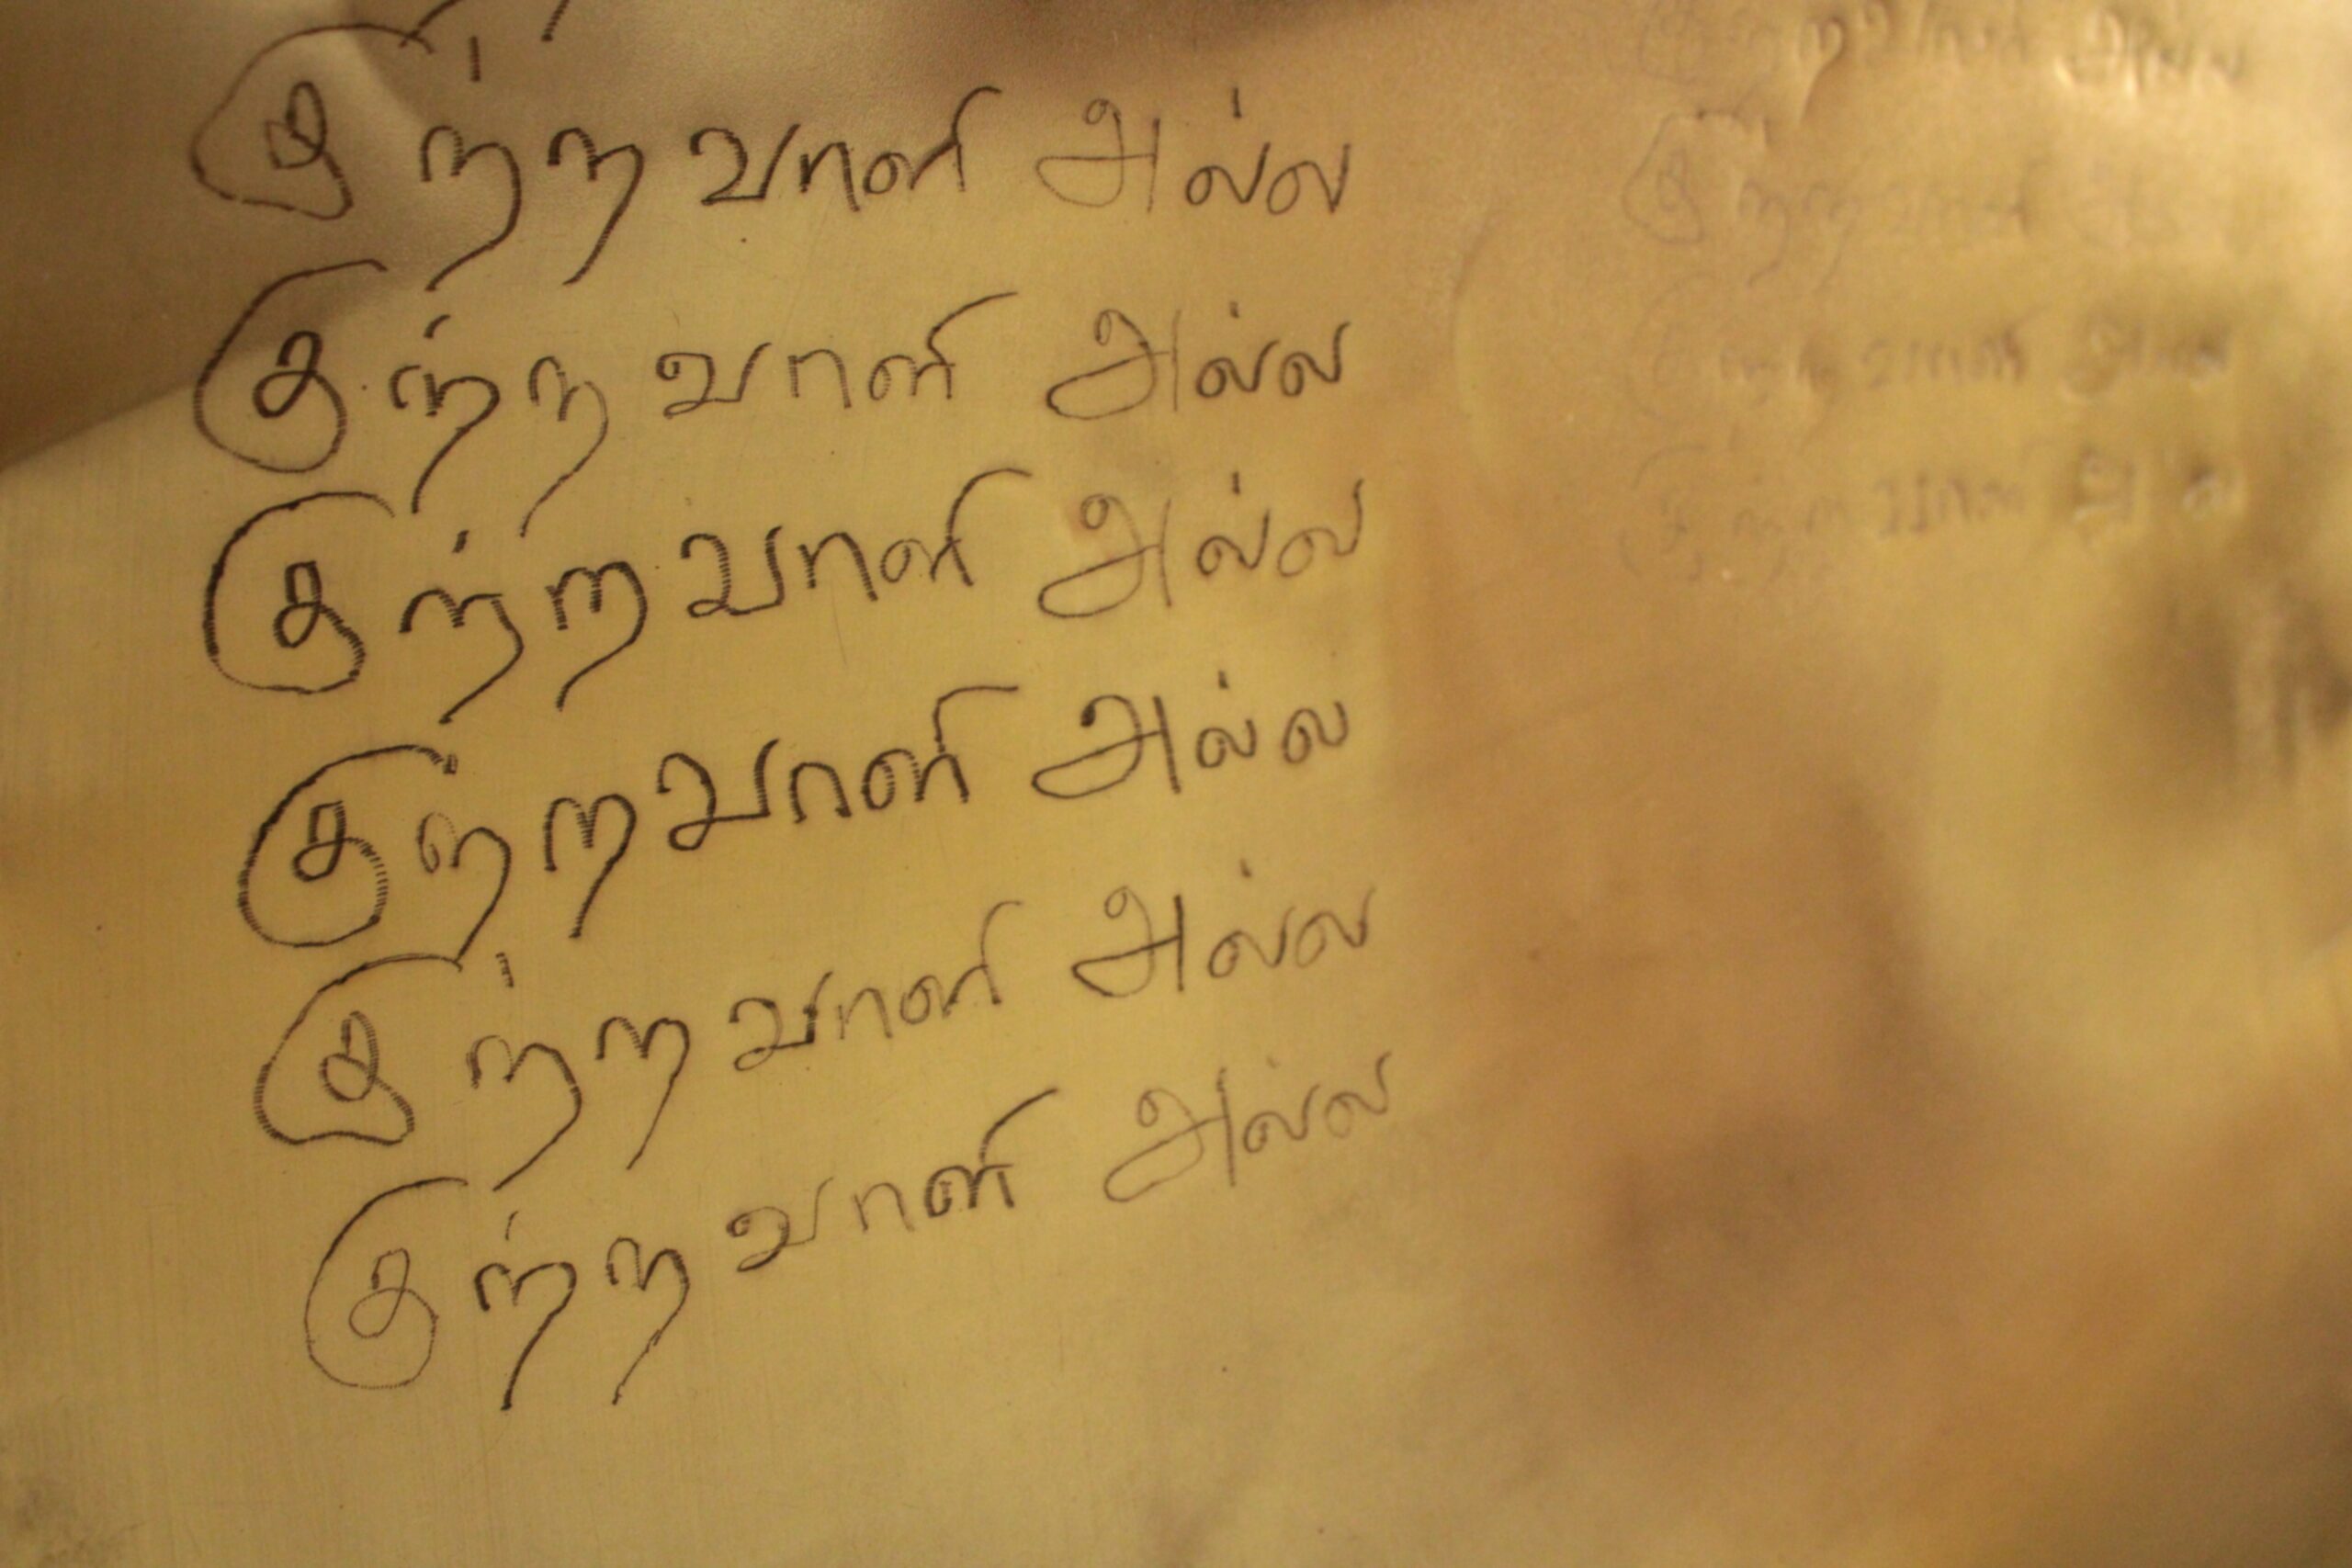 குற்றவாளி அல்ல
குற்றவாளி அல்ல
குற்றவாளி அல்ல
குற்றவாளி அல்ல
குற்றவாளி அல்ல
குற்றவாளி அல்ல